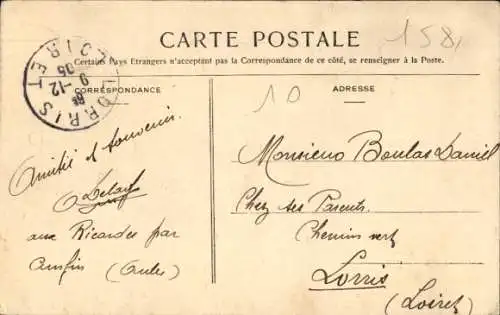 CARTE POSTALE
158
Certains Pays Etrangers n'acceptant pas la Correspondance de ce côté, se renseigner à la Poste.
LORRIS
LOIRET
9 -12
05
CORRESPONDANCE
ADRESSE
10
Amitiés et souvenir
Monsieur Boulas Daniel
Chez ses Parents
aux Ricardes par
Chemin vert
(Aube)
Lorris
(Loiret)